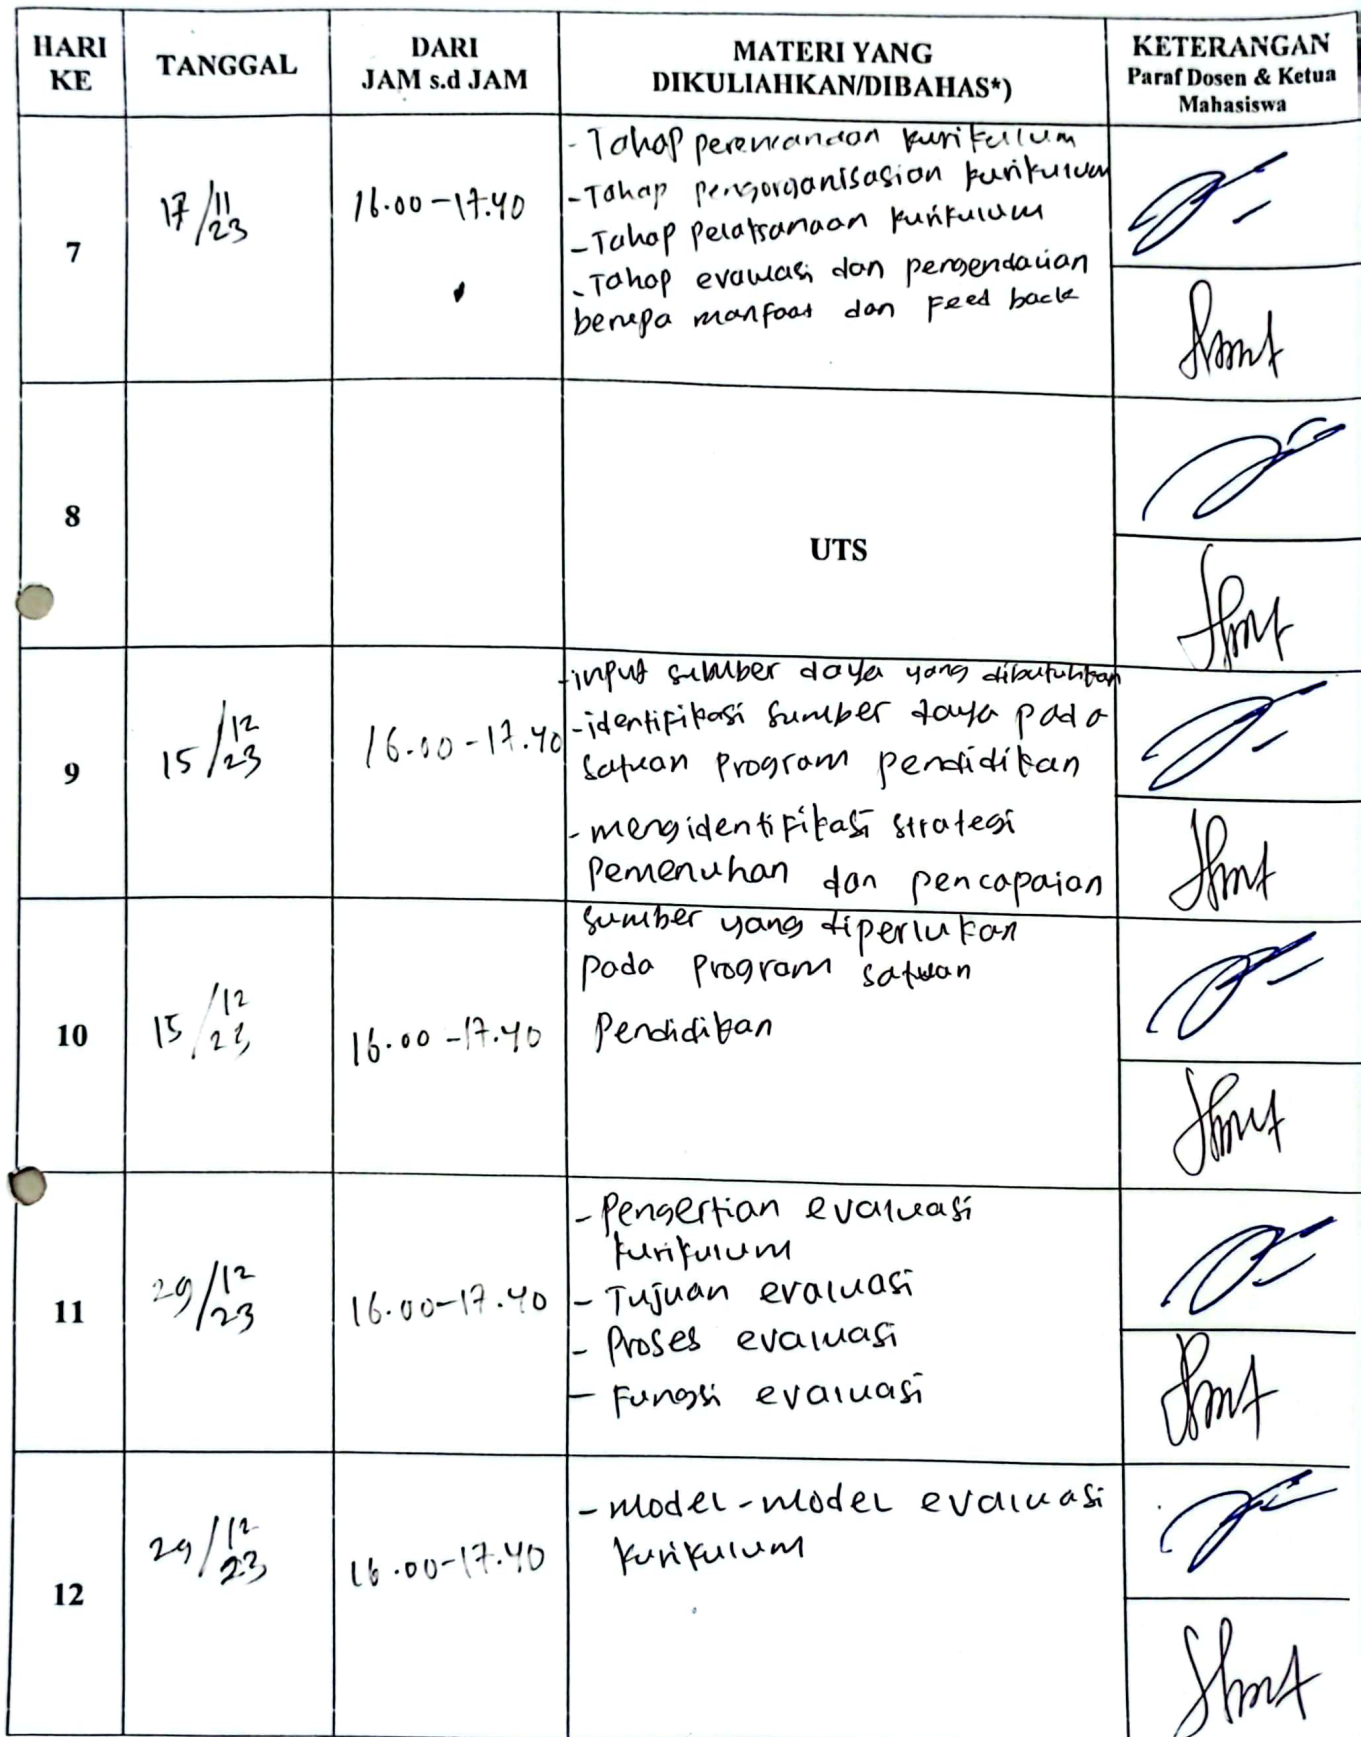 HARI KE TANGGAL DARI JAM s.d JAM MATERI YANG DIKULIAHKAN/DIBAHAS*) KETERANGAN Paraf Dosen & Ketua Mahasiswa
7 17/11/23 16.00-17.40
- Tahap perencanaan kurikulum
- Tahap pengorganisasian kurikulum
- Tahap pelaksanaan kurikulum
- Tahap evaluasi dan pengendalian
berupa manfaat dan Feed back
8 UTS
9 15/12/23 16.00-17.40
- input sumber daya yang dibutuhkan
- identifikasi sumber daya pada
satuan program pendidikan
- mengidentifikasi strategi
pemenuhan dan pencapaian
10 15/12/23 16.00-17.40
sumber yang diperlukan
pada program satuan
Pendidikan
11 29/12/23 16.00-17.40
- Pengertian evaluasi
kurikulum
- Tujuan evaluasi
- Proses evaluasi
- Fungsi evaluasi
12 29/12/23 16.00-17.40
- model-model evaluasi
kurikulum